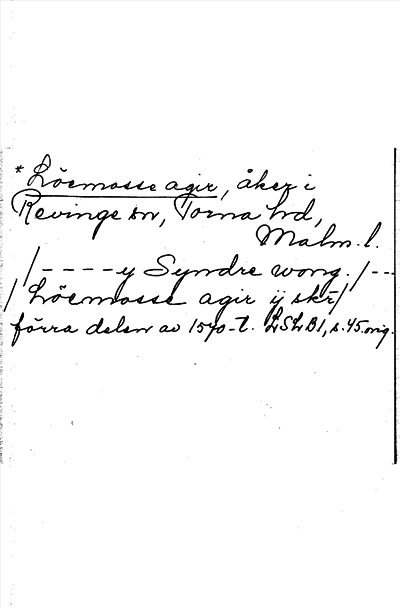 * Löemosse agir, åker i
Revinge sn, Torna hd,
Malm. l.
/----y Syndre wong. /---
/ Löemosse agir ij skr/
förra delen av 1570-t. LSLB1, s. 45. orig.